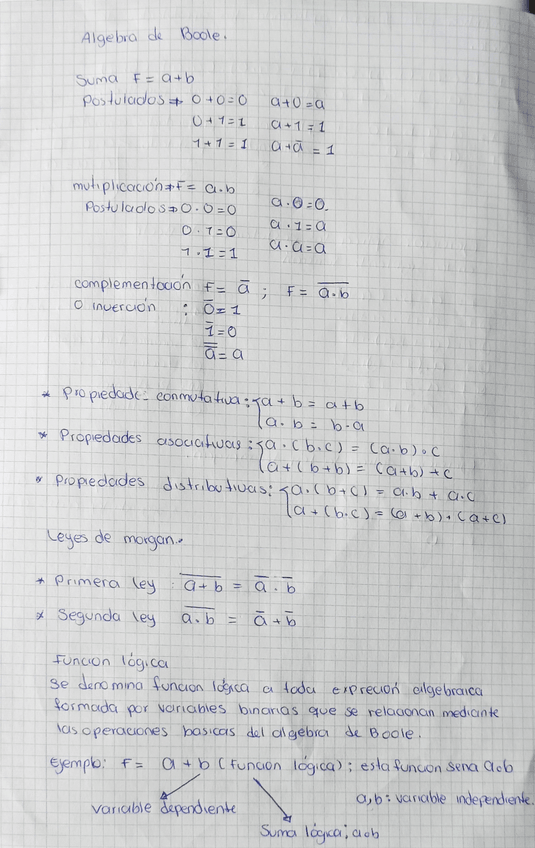 Algebra de Boole.
Suma F = a+b
Postulados → 0+0=0 a+0=a
0+1=1 a+1=1
1+1=1 a+a̅ = 1
mutiplicación → F= a.b
Postulados → 0.0=0 a.0=0.
0.1=0 a.1=a
1.1=1 a.a=a
complementación F= a̅ ; F= \overline{a.b}
o inverción : 0̅=1
1̅=0
a̿=a
* Propiedade- conmutativa: { a+b = a+b
a.b = b.a
* Propiedades asociativas: { a.(b.c) = (a.b).c
a+(b+b) = (a+b)+c
* Propiedades distributivas: { a.(b+c) = a.b + a.c
a+(b.c) = (a+b).(a+c)
Leyes de morgan.
* Primera ley : \overline{a+b} = a̅ . b̅
* Segunda ley \overline{a.b} = a̅ + b̅
Funcion lógica
Se denomina funcion lógica a toda expreción algebraica
formada por variables binarias que se relacionan mediante
las operaciones basicas del algebra de Boole.
Ejemplo: F= a+b (funcion lógica); esta funcion sena aob
variable dependiente a,b: variable independiente.
Suma lógica; aob